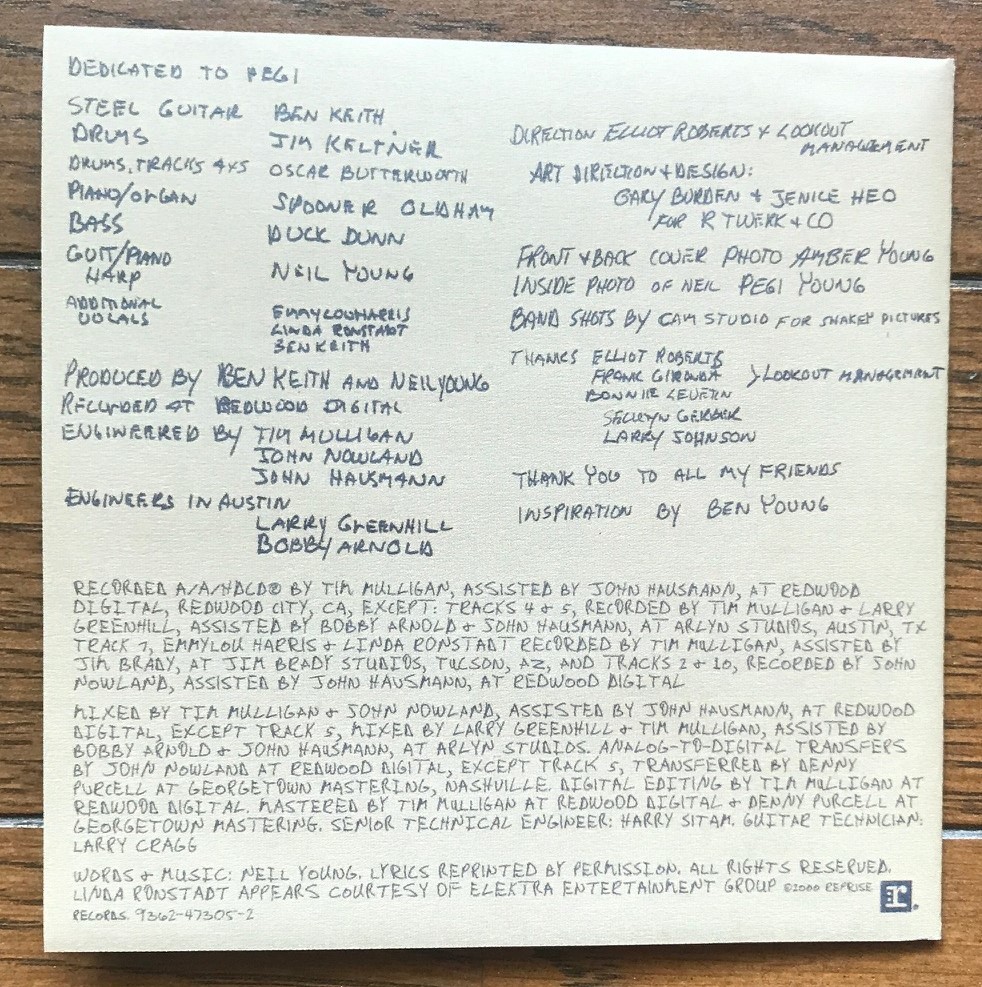 DEDICATED TO PEGI
STEEL GUITAR BEN KEITH
DRUMS JIM KELTNER
DRUMS, TRACKS 4+5 OSCAR BUTTERWORTH
PIANO/ORGAN SPOONER OLDHAM
BASS DUCK DUNN
GUIT/PIANO
HARP NEIL YOUNG
ADDITIONAL
VOCALS EMMYLOUHARRIS
LINDA RONSTADT
BEN KEITH
PRODUCED BY BEN KEITH AND NEIL YOUNG
RECORDED AT REDWOOD DIGITAL
ENGINEERED BY TIM MULLIGAN
JOHN NOWLAND
JOHN HAUSMANN
ENGINEERS IN AUSTIN
LARRY GREENHILL
BOBBY ARNOLD
DIRECTION ELLIOT ROBERTS + LOOKOUT
MANAGEMENT
ART DIRECTION + DESIGN:
GARY BURDEN + JENICE HEO
FOR R TWERK + CO
FRONT + BACK COVER PHOTO AMBER YOUNG
INSIDE PHOTO OF NEIL PEGI YOUNG
BAND SHOTS BY CAM STUDIO FOR SHAKEY PICTURES
THANKS ELLIOT ROBERTS
FRANK GIRONDA >LOOKOUT MANAGEMENT
BONNIE LEVETIN
SELWYN GERBER
LARRY JOHNSON
THANK YOU TO ALL MY FRIENDS
INSPIRATION BY BEN YOUNG
RECORDED A/A/HDCD® BY TIM MULLIGAN, ASSISTED BY JOHN HAUSMANN, AT REDWOOD
DIGITAL, REDWOOD CITY, CA, EXCEPT: TRACKS 4 + 5, RECORDED BY TIM MULLIGAN + LARRY
GREENHILL, ASSISTED BY BOBBY ARNOLD + JOHN HAUSMANN, AT ARLYN STUDIOS, AUSTIN, TX
TRACK 7, EMMYLOU HARRIS + LINDA RONSTADT RECORDED BY TIM MULLIGAN, ASSISTED BY
JIM BRADY, AT JIM BRADY STUDIOS, TUCSON, AZ, AND TRACKS 2 + 10, RECORDED BY JOHN
NOWLAND, ASSISTED BY JOHN HAUSMANN, AT REDWOOD DIGITAL
MIXED BY TIM MULLIGAN + JOHN NOWLAND, ASSISTED BY JOHN HAUSMANN, AT REDWOOD
DIGITAL, EXCEPT TRACK 5, MIXED BY LARRY GREENHILL + TIM MULLIGAN, ASSISTED BY
BOBBY ARNOLD + JOHN HAUSMANN, AT ARLYN STUDIOS. ANALOG-TO-DIGITAL TRANSFERS
BY JOHN NOWLAND AT REDWOOD DIGITAL, EXCEPT TRACK 5, TRANSFERRED BY DENNY
PURCELL AT GEORGETOWN MASTERING, NASHVILLE. DIGITAL EDITING BY TIM MULLIGAN AT
REDWOOD DIGITAL. MASTERED BY TIM MULLIGAN AT REDWOOD DIGITAL + DENNY PURCELL AT
GEORGETOWN MASTERING. SENIOR TECHNICAL ENGINEER: HARRY SITAM. GUITAR TECHNICIAN:
LARRY CRAGG
WORDS + MUSIC: NEIL YOUNG. LYRICS REPRINTED BY PERMISSION. ALL RIGHTS RESERVED.
LINDA RONSTADT APPEARS COURTESY OF ELEKTRA ENTERTAINMENT GROUP ©2000 REPRISE
RECORDS. 9362-47305-2
r